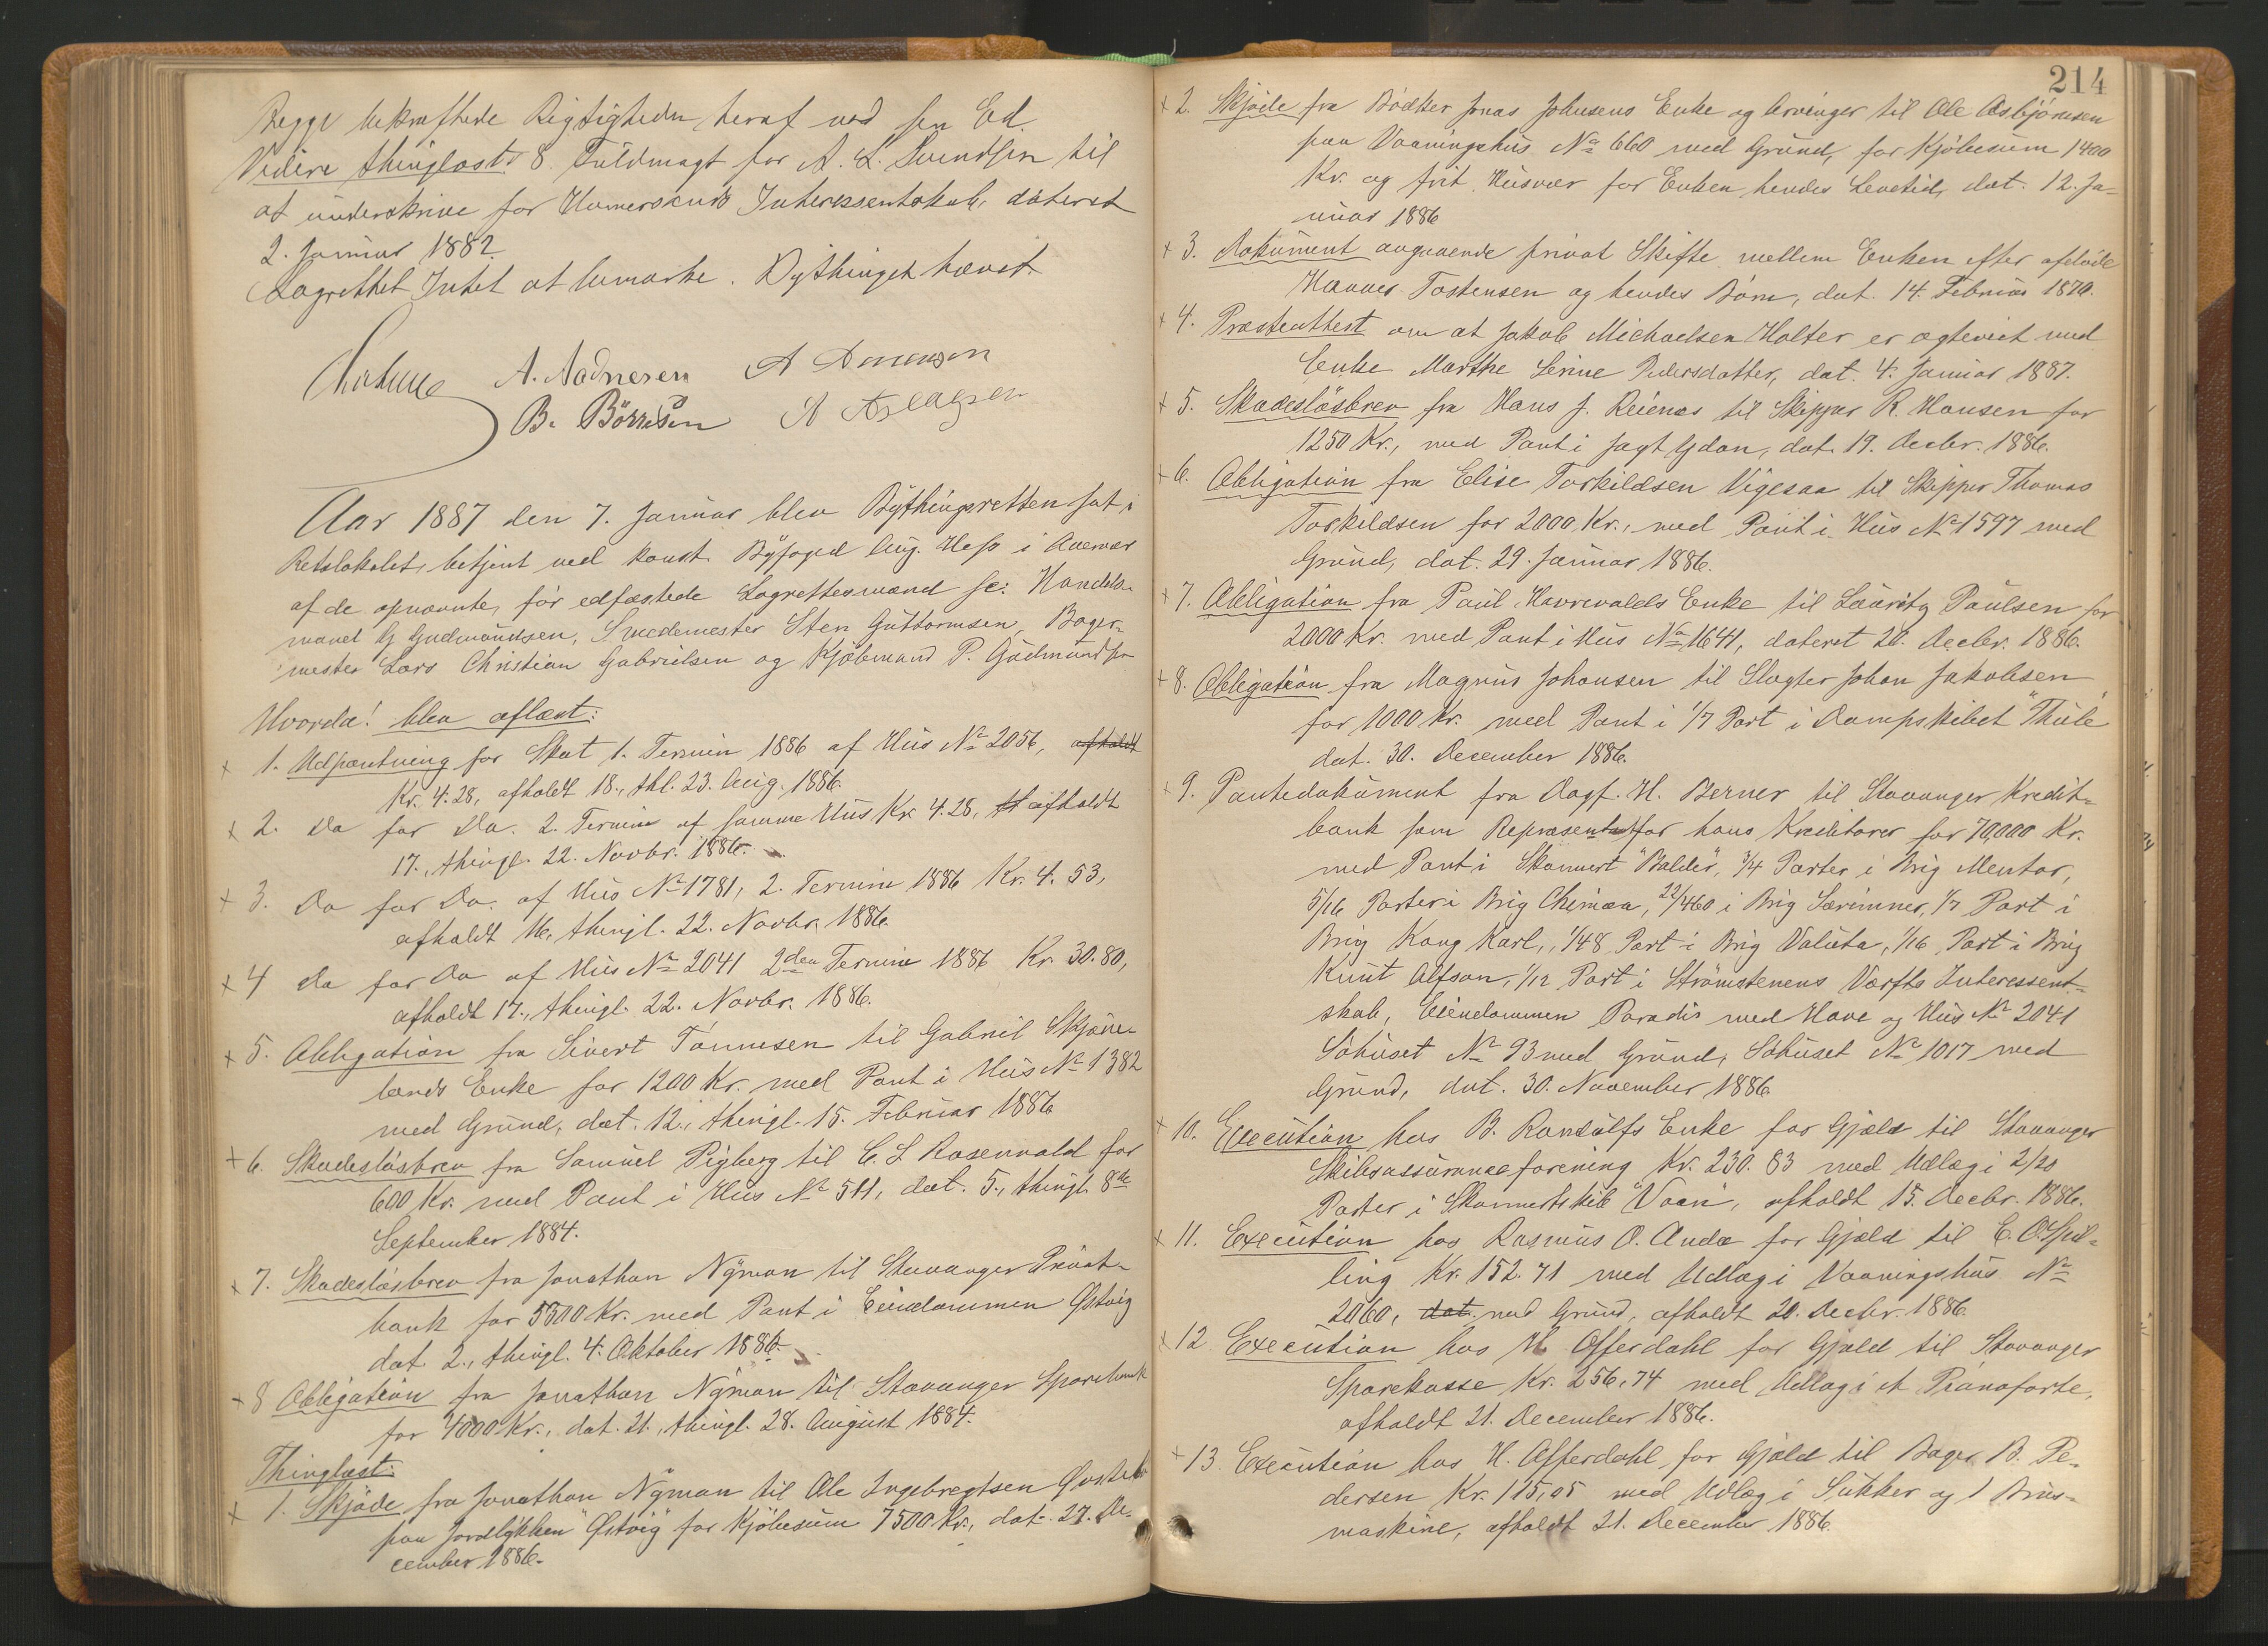 Begge bekræftede Rigtigheden heraf ved sin Ed.
Videre thinglæst: 8. Fuldmagt for A. L. Svendsen til
at underskrive for Interessentskab, dateret
2. Januar 1882.
Lagrettet Intet at bemærke. Bythinget hævet.
A. Aadnesen
B. Börresen A Aslagsen
Aar 1887 den 7. Januar blev Bythingsretten sat i
Retslokalet, betjent ved konst. Byfoged Aug. Hess i Overvær
af de opnævnte, før edfæstede Lagrettesmænd sc: Handels-
mand G. Gudmundsen, Smedemester Sten Guttormsen, Bager-
mester Lars Christian Gabrielsen og Kjøbmand P. Gudmundsen
Hvorda! blev aflæst:
x 1. Udpantning for Skat 1. Termin 1886 af Hus No 2056, afholdt
Kr. 4.28, afholdt 18., thl. 23. Aug. 1886.
x 2. Do for Do. 2. Termin af samme Hus Kr. 4.28, th afholdt
17., thingl. 22. Novbr. 1886.
x 3. Do for Do. af Hus No 1781, 2. Termin 1886 Kr. 4.53,
afholdt 16, thingl. 22. Novbr. 1886.
x 4 Do for Do af Hus No 2041 2den Termin 1886 Kr. 30.80,
afholdt 17., thingl. 22. Novbr. 1886.
x 5. Obligation fra Sivert Tønnesen til Gabriel Skjæve-
lands Enke for 1200 Kr. med Pant i Hus No 1382
med Grund, dat. 12., thingl. 15. Februar 1886
x 6. Skadesløsbrev fra Samuel Pigberg til C. L. Rosenvald for
600 Kr. med Pant i Hus No 511, dat. 5., thingl. 8de
September 1884.
x 7. Skadesløsbrev fra Jonathan Nÿman til Stavanger Privat-
bank for 5300 Kr. med Pant i Eiendommen Østvig
dat. 2., thingl. 4. Oktober 1886.
x 8 Obligation fra Jonathan Nÿman til Stavanger Sparebank
for 4000 Kr., dat. 21., thingl. 28. August 1884.
Thinglæst:
x 1. Skjøde fra Jonathan Nÿman til Ole Ingebregtsen
paa Jordlykken "Østvig" for Kjøbesum 7500 Kr., dat. 27. De-
cember 1886.
214
x 2. Skjøde fra Bødker Jonas Johnsens Enke og Arvinger til Ole Asbjørnsen
paa Vaaningshus No 660 med Grund, for Kjøbesum 1400
Kr. og frit Husvær for Enken hendes Levetid, dat. 12. Ja-
nuar 1886
x 3. Dokument angaaende privat Skifte mellem Enken efter afdøde
Hannes Tostensen og hendes Børn, dat. 14. Februar 1870.
x 4. Præsteattest om at Jakob Michaelsen Holter er ægteviet med
Enke Marthe Serine Pedersdatter, dat. 4. Januar 1887.
x 5. Skadesløsbrev fra Hans J. Reienæs til Skipper R. Hansen for
1250 Kr., med Pant i Jagt Ydon, dat. 19. Decbr. 1886.
x 6. Obligation fra Elise Torkildsen Vigesaa til Skipper Thomas
Torkildsen for 2000 Kr., med Pant i Hus No 1597 med
Grund, dat. 29. Januar 1886.
x 7. Obligation fra Paul Havrevolds Enke til Lauritz Paulsen for
2000 Kr. med Pant i Hus No 1641, dateret 20. Decbr. 1886.
x 8. Obligation fra Magnus Johansen til Slagter Johan Jakobsen
for 1000 Kr. med Pant i 1/7 Part i Dampskibet "Thule"
dat. 30. December 1886.
x 9. Pantedokument fra Dagf. H. Berner til Stavanger Kredit-
bank som Repræsentant for hans Kreditorer for 70,000 Kr.
med Pant i Skonnert "Balder", 3/4 Parter i Brig Mentor,
5/16 Parter i Brig Chimæa, 22/460 i Brig Særimner, 1/7 Part i
Brig Kong Karl, 1/48 Part i Brig Valuta, 1/16 Part i Brig
Knut Alfson, 1/12 Part i Strømstenens Værfts Interessent-
skab, Eiendommen Paradis med Have og Hus No 2041
Søhuset No 93 med Grund, Søhuset No 1017 med
Grund, dat. 30. November 1886
x 10. Execution hos B. Randulfs Enke for Gjæld til Stavanger
Skibsassuranceforening Kr. 230.83 med Udlæg i 2/20
Parter i Skonnertskib "Voan", afholdt 15. Decbr. 1886.
x 11. Execution hos Rasmus O. Anda for Gjæld til C. Ospil-
ling Kr. 152.71 med Udlæg i Vaaningshus No
2060, dat. med Grund, afholdt 20. Decbr. 1886
x 12 Execution hos H. Offerdahl for Gjæld til Stavanger
Sparekasse Kr. 256,74 med Udlæg i et Pianoforte,
afholdt 21. December 1886.
x 13. Execution hos H. Offerdahl for Gjæld til Bager B. Pe-
dersen Kr. 115,05 med Udlæg i Sukker og 1 Brus-
maskine, afholdt 21. December 1886.